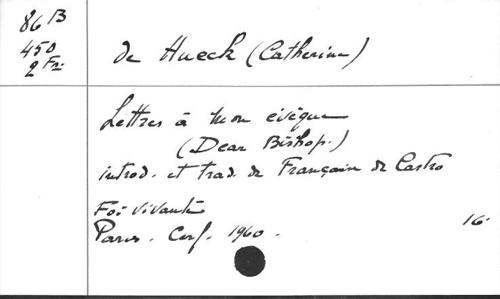 86 B
450
2 Fr.
de Hueck (Catherine)
Lettres à mon évêque
(Dear Bishop.)
introd. et trad. de Françoise de Castro
Foi vivante
Paris. Cerf. 1960.
16.